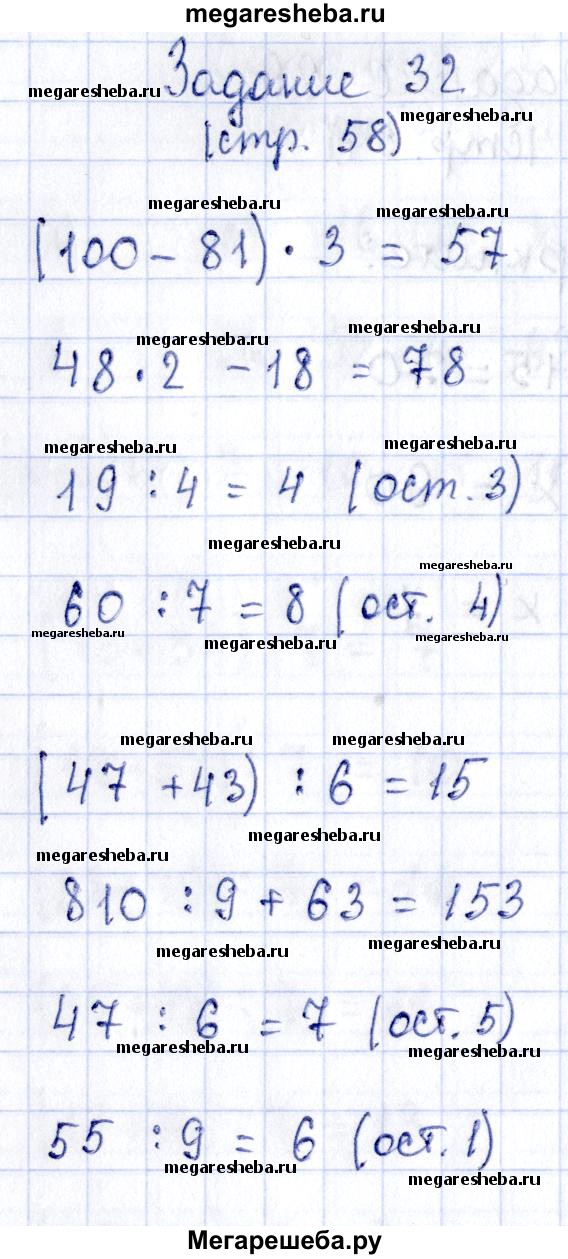 megaresheba.ru
Задание 32
megaresheba.ru megaresheba.ru
(стр. 58)
megaresheba.ru megaresheba.ru
(100 - 81) · 3 = 57
megaresheba.ru megaresheba.ru
48 · 2 - 18 = 78
megaresheba.ru megaresheba.ru
19 : 4 = 4 (ост. 3)
megaresheba.ru megaresheba.ru
60 : 7 = 8 (ост. 4)
megaresheba.ru megaresheba.ru megaresheba.ru
megaresheba.ru megaresheba.ru
(47 + 43) : 6 = 15
megaresheba.ru
megaresheba.ru
810 : 9 + 63 = 153
megaresheba.ru megaresheba.ru
47 : 6 = 7 (ост. 5)
megaresheba.ru megaresheba.ru
55 : 9 = 6 (ост. 1)
megaresheba.ru megaresheba.ru
Мегарешеба.ру